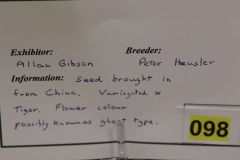 Exhibitor: Breeder:
Allan Gibson Peter Heusler
Information: Seed brought in
from China. Varigata x
Tiger. Flower colour
possibly known as ghost type.
098